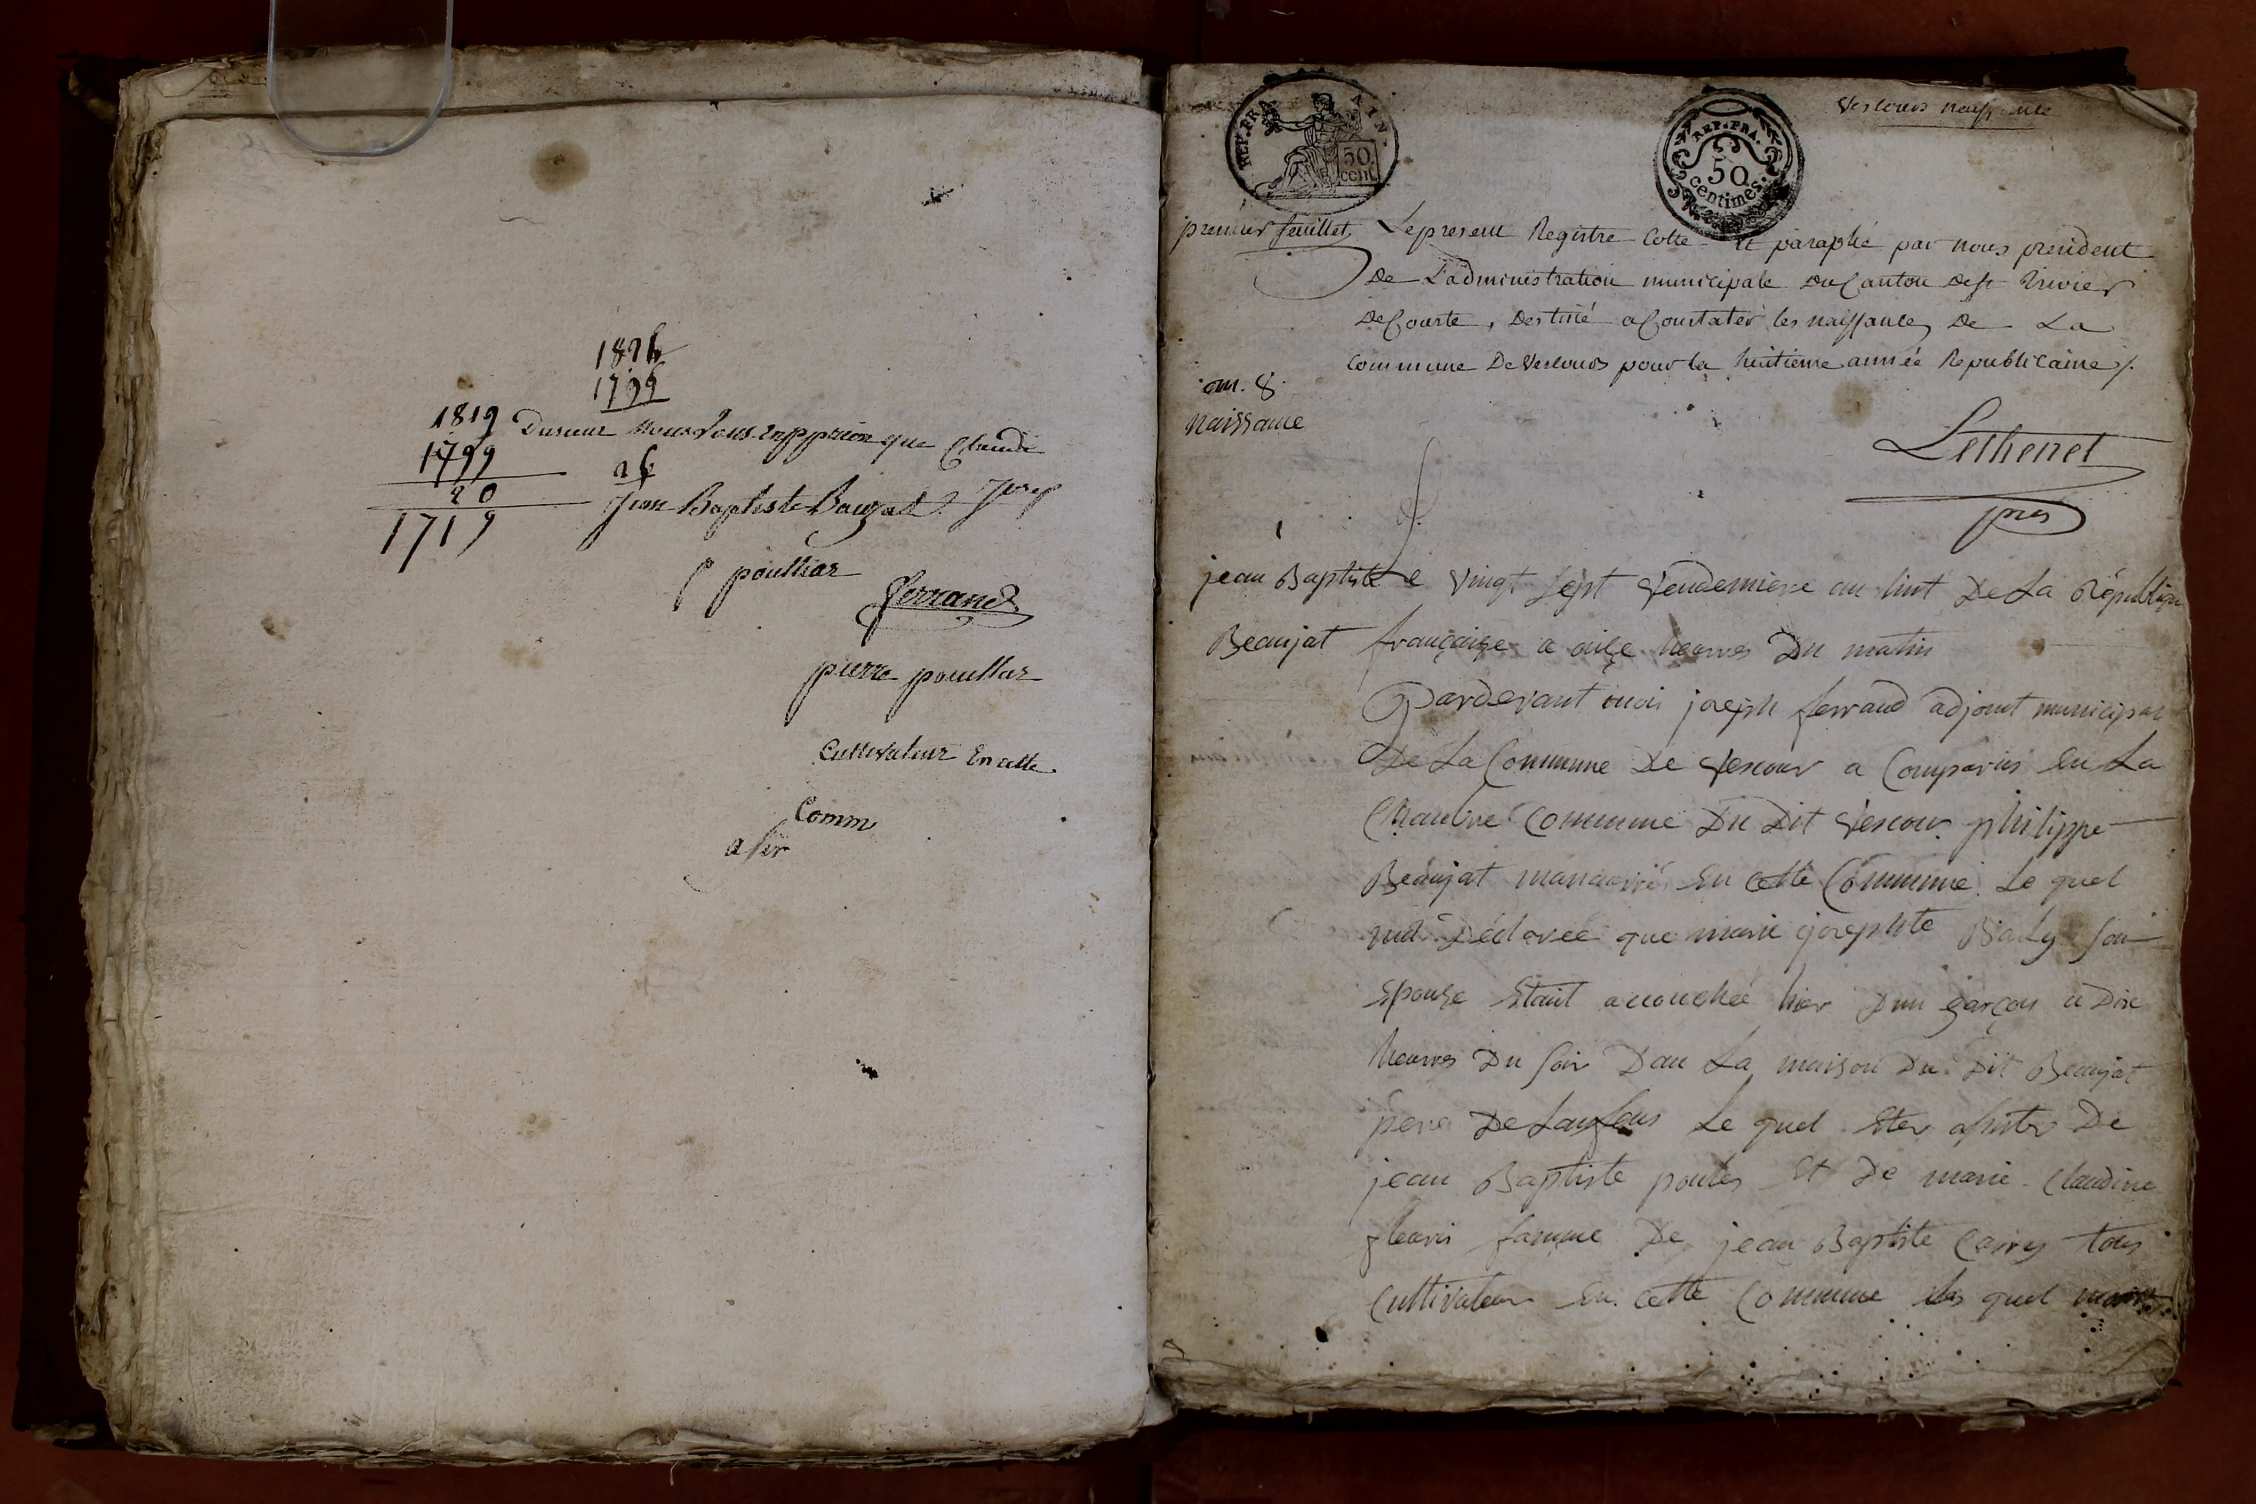 1824
1799
1819 Dusieur nous vous enpprion que Claude
1799 24
20 Jean Baptiste Bauzat Josep
1719
p poulliar
ferrand
pierre poulliar
Cultivateur En cette
Comm
a ser
REP. FRA AIN.
50 cent.
REP. FRA.
50
centimes.
Vescours naissance
premier feuillet. Le present Registre Cotte et paraphé par nous president
De L'administration municipale Du Canton de St Trivier
De Courte, Destiné a Constater les naissances De La
Commune De Vescours pour la huitieme année Republicaine /.
an. 8.
Naissance
Lethenet
pres
1
jean Baptiste Le vingt sept vendemiere an huit De La Républiqu
Beaujat française a onze heures Du matin
Pardevant moi joseph ferrand adjoint municipal
De La Commune De Vescour a Comparus en La
Chambre Commune Du Dit Vescour philippe
Beaujat en cette Commune Le quel
ma Déclaree que marie josephte Baly son
Epouze Etant accouchée hier Dun garçon a Dix
heures Du soir Dan La maison Du Dit Beaujat
pere De Lanfens Le quel Eter assister De
jean Baptiste et De marie Claudine
fleuri famme De jean Baptiste tous
Cultivateur en cette Commune les quel mon